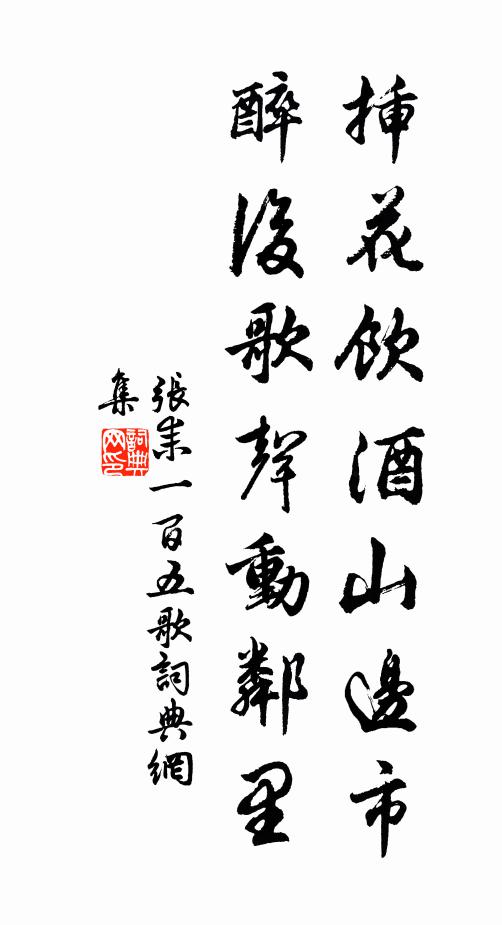 挿花飲酒山邊市
醉後歌聲動鄰里
張耒一百五歌詞典網
集
詞典网印